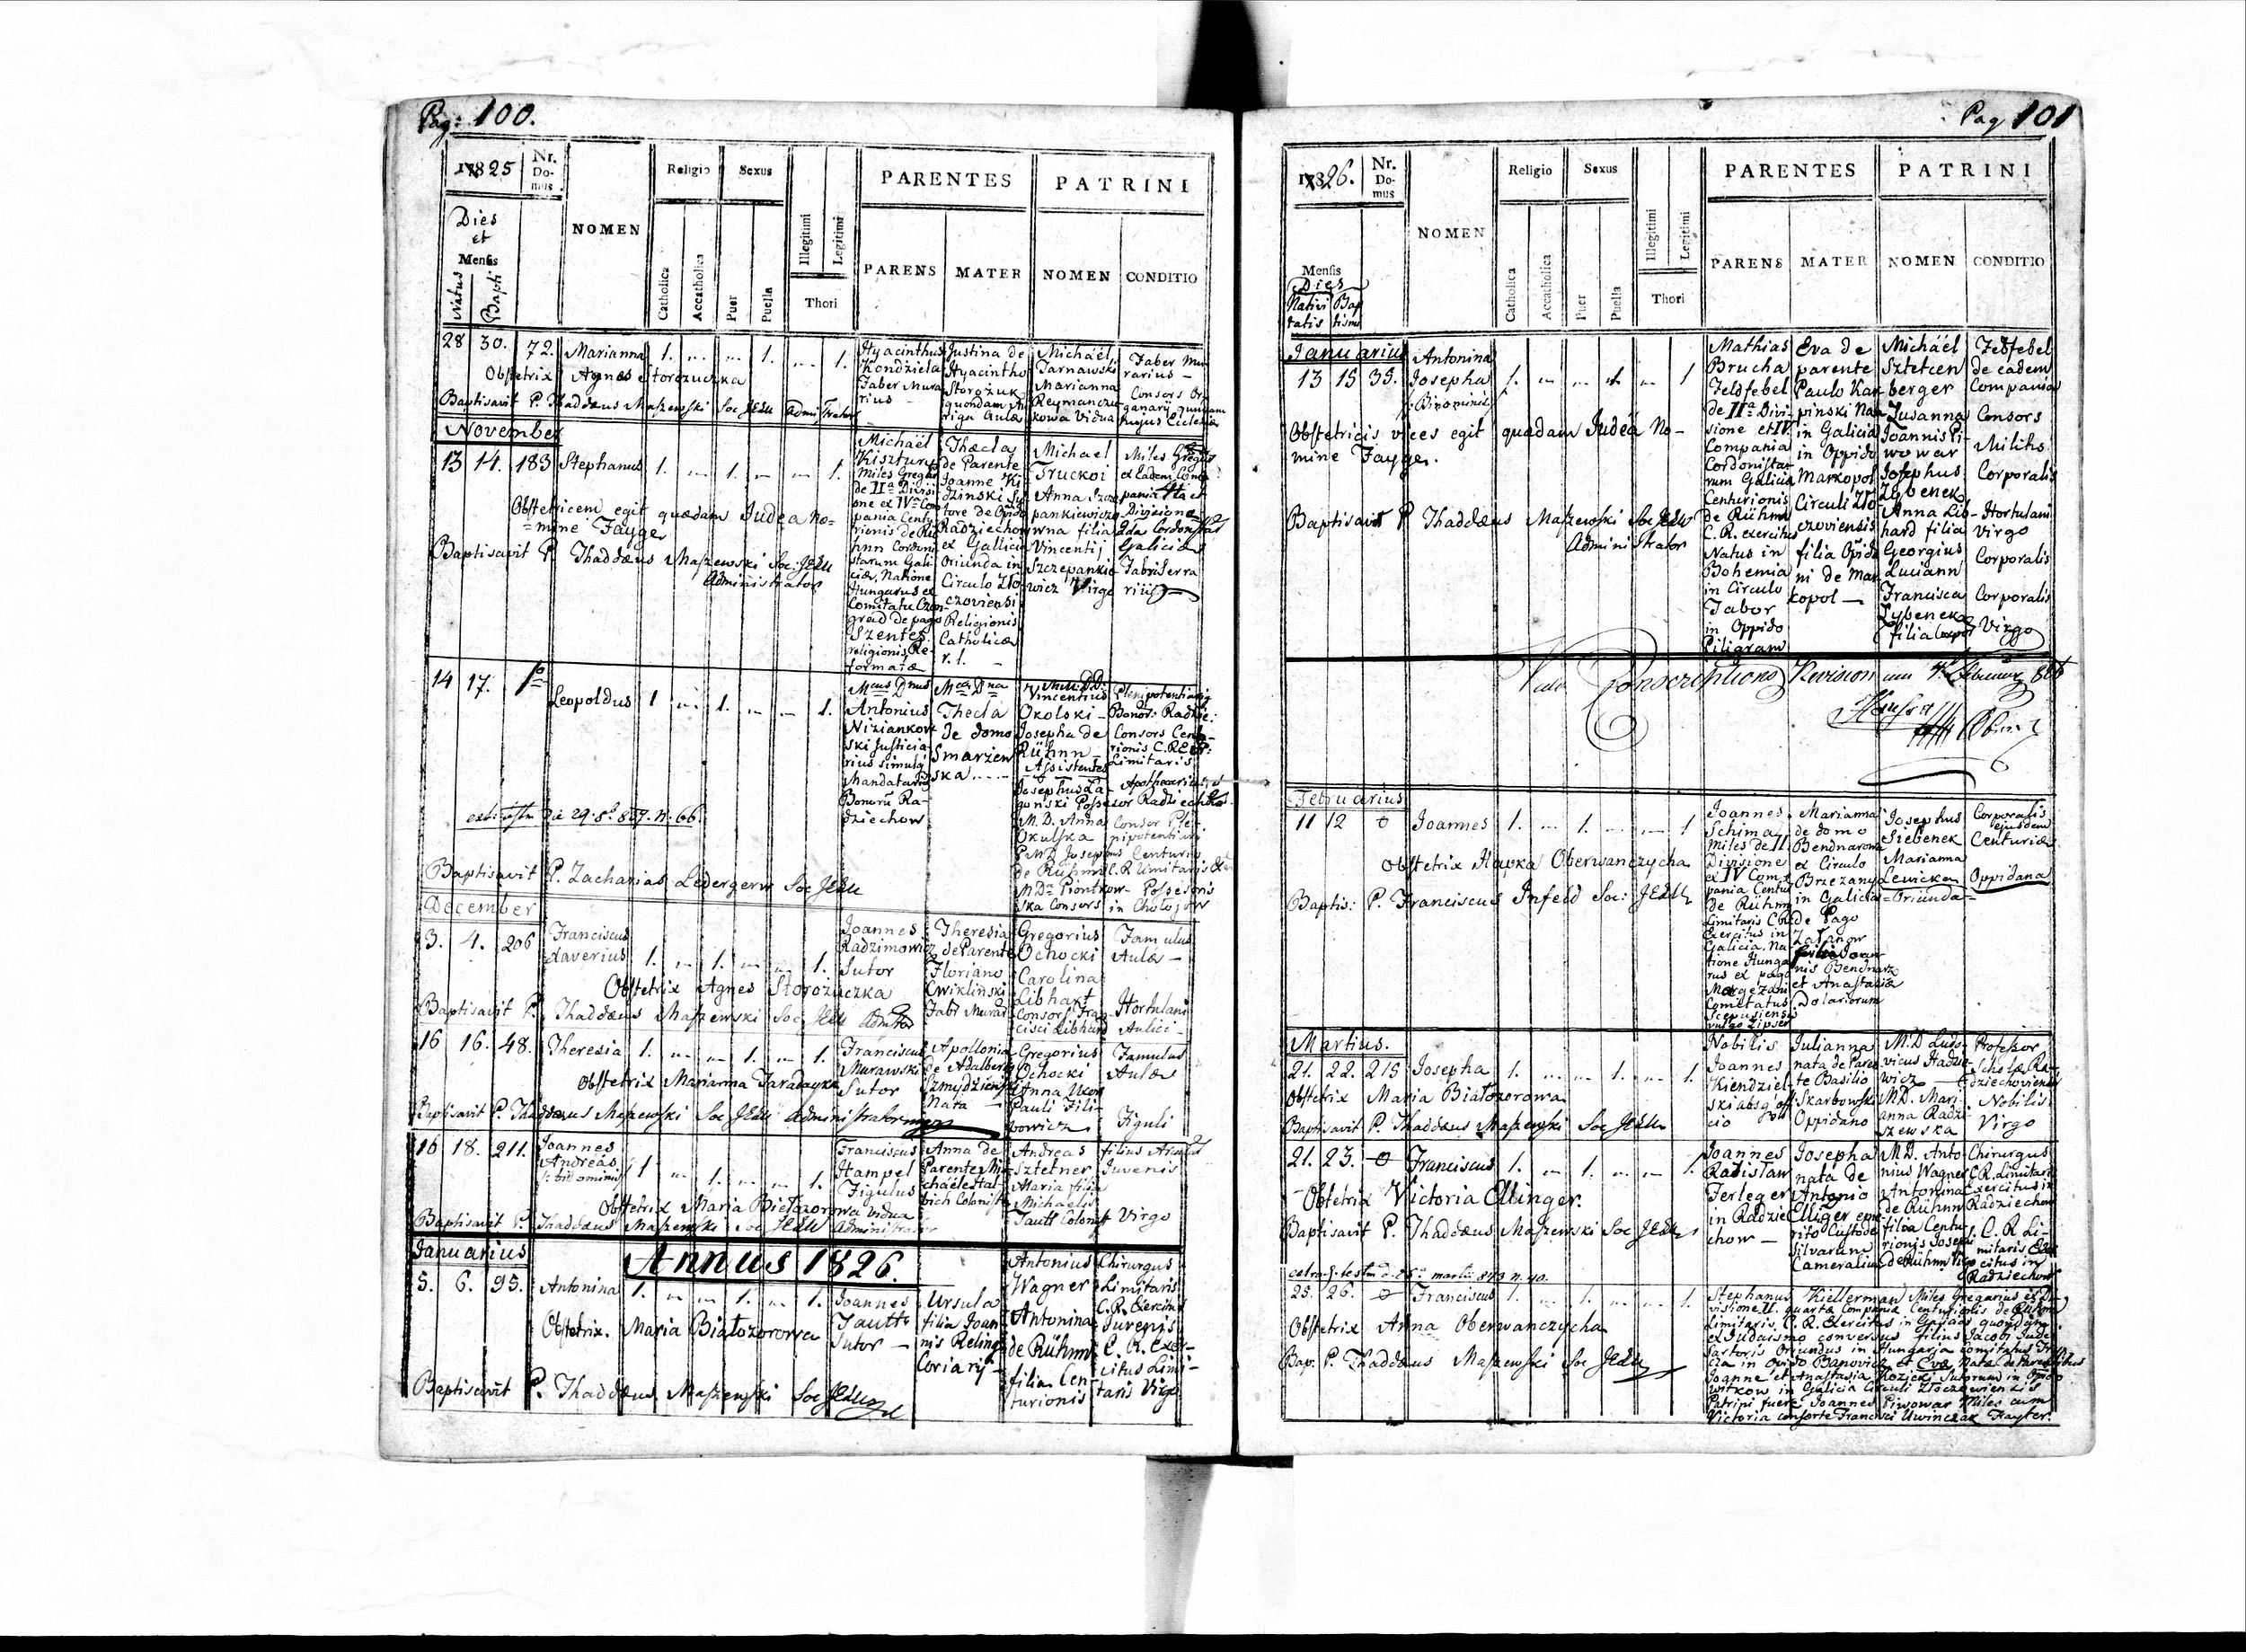 Pag: 100.
1825
Nr. Domus
NOMEN
Religio
Sexus
PARENTES
PATRINI
Dies et Mensis
Natus
Bapti
Catholica
Accatholica
Puer
Puella
Illegitimi
Legitimi
Thori
PARENS
MATER
NOMEN
CONDITIO
28 30. 72. Marianna 1. 1. 1.
Hyacinthus
Kondziela
Faber Mura
rius
Justina de
Hyacintho
Storożuk
quondam Au
riga Aulæ
Michaël
Tarnawski
Marianna
Reymanczu
kowa Vidua
Faber Mu
rarius
Consors Or
ganarii quondam
hujus Ecclesiæ
Obstetrix Agnes Storozuczka
Baptisavit P. Thaddæus Maszewski Soc JESU Admi⁠nistrator
November
13 14. 183 Stephanus 1. 1. 1.
Michaël
Kisztury
Miles Grega
de IIa Divisi
one ex IVa Com
pania Centu
rionis de Rü
hnn Cordoni
starum Gali
ciæ, Natione
Hungarus ex
Comitatu Czon
grad de pago
Szentes
religionis Re
formatæ
Thæcla
de Parente
Joanne Ki
dzinski Su
tore de Oppido
Radziechow
ex Gallicia
Oriunda in
Circulo Zło
czoviensi
Religionis
Catholicæ
r. l.
Michael
Truckoi
Anna Szcze
pankiewiczo
wna filia
Vincentij
Szczepankie
wicz Virgo
Miles Grega
ex Eadem Com
pania
Divisione
Cordonista
Galiciæ
Fabri Ferra
rii
Obstetricem egit quædam Judea no=
=mine Fayge
Baptisavit P. Thaddæus Maszewski Soc: JESU
Administrator
14 17. 1o Leopoldus 1 1. 1.
Mcus Dnus
Antonius
Niziankow
ski Justicia
rius simulq
Mandatarius
Bonorū Ra-
dziechow
Mca Dna
Thecla
de domo
Smarzew
ska
MM. DD.
Vincentius
Okolski
Josepha de
Rühnn
Assistentes
Josephus La
gonski Posse
M. D. Anna
Okulska
P. M. D. Josephus
de Rühnn
M Da Piontkow-
ska Consors
Plenipotentiarius
Bonor: Radzie:
Consors Centu-
rionis C. R. Exer:
Limitaris
Apothecarius
sor Radziechow
Consor Ple-
nipotentiarii
Centurio
C. R Limitaris Exer
Possesoris
in Chołojow
Baptisavit P. Zacharias Ledergerw Soc JESU
December
3. 4. 206 Franciscus
Xaverius 1. 1. 1.
Joannes
Radzimowicz
Sutor
Theresia
de Parente
Floriano
Cwikliński
Fabr Murar
Gregorius
Ochocki
Carolina
Libhart
Consors Fran-
cisci Libhard
Famulus
Aulæ
Hortulani
Aulici
Obstetrix Agnes Storozuczka
Baptisavit P. Thaddæus Maszewski Soc JESU
16 16. 48. Theresia 1. 1. 1.
Franciscus
Murawski
Sutor
Apollonia
de Adalberto
Szmydzienski
Nata
Gregorius
Ochocki
Anna Uxor
Pauli Fili-
powicz
Famulus
Aulæ
Figuli
Obstetrix Marianna Taradayka
Baptisavit P. Thaddæus Maszewski Soc JESU Administrator
16 18. 211. Joannes
Andreas
/: bi nominis 1 1. 1.
Franciscus
Hampel
Figulus
Anna de
Parente Mi
chäele Hal
bich Colonista
Andreas
Sztetner
Maria filia
Michaelis
Tautt Colonist
filius
Juvenis
Virgo
Obstetrix Maria Białozorowa vidua
Baptisavit P. Thaddæus Maszewski Soc JESU Administrator
Januarius
Annus 1826.
5. 6. 95. Antonina 1. 1. 1.
Joannes
Tautt
Sutor
Ursula
filia Joan
nis Reling
Coriarij
Antonius
Wagner
Antonina
de Rühnn
filia Cen
turionis
Chirurgus
Limitaris
C. R. Exercitus
Juvenis
C. R. Exer-
citus Limi-
taris Virgo
Obstetrix. Maria Białozorowa
Baptisavit P. Thaddæus Maszewski Soc JESU
Pag 101
1826.
Nr. Domus
NOMEN
Religio
Sexus
PARENTES
PATRINI
Mensis
Dies
Nativi
tatis
Bap
tismi
Catholica
Accatholica
Puer
Puella
Illegitimi
Legitimi
Thori
PARENS
MATER
NOMEN
CONDITIO
Januarius
13 15 35. Antonina
Josepha
/: Binominis 1. 1 1
Mathias
Brucha
Feldfebel
de IIa Divi-
sione et IV
Compania
Cordonista
rum Galiciæ
Centurionis
de Rühnn
C. R. exercitus
Natus in
Bohemia
in Circulo
Tabor
in Oppido
Piligram
Eva de
parente
Paulo Kar
pinski Nata
in Galicia
in Oppido
Markopol
Circuli Zło
czoviensis
filia Oppida
ni de Mar
kopol
Michäel
Sztetten
berger
Zusanna
Joannis Pi-
wowar
Josephus
Zybenek
Anna Lib-
hard filia
Georgius
Luciann
Francisca
Zybenek
filia
Feldfebel
de eadem
Compania
Consors
Militis
Corporalis
Hortulani
Virgo
Corporalis
Corporalis
Virgo
Obstetricis vices egit quædam Judëa No-
mine Fayge.
Baptisavit P Thaddæus Maszewski Soc JESU
Administrator
Conscriptions Revision
Februarius
11 12 0 Joannes 1. 1. 1
Joannes
Schima
Miles de II
Divisione
ex IV Com
pania Centu
de Rühnn
Limitaris C R
Exercitus in
Galicia, Na-
tione Hunga
rus ex pago
Margezani
Comitatus
Scepusiensis
vulgo Zipser
Marianna
de domo
Bendnarowa
ex Circulo
Brzezany
in Galicia
de Pago
filia Joan
nis Bendnarz
et Anastasia
Dolariorum
Josephus
Siebenek
Marianna
Lewicka
=Oriunda=
Corporalis
ejusdem
Centuriæ
Oppidana
Obstetrix Havka Oberwanczycha
Baptis: P. Franciscus Infeld Soc: JESU
Martius.
21. 22. 215 Josepha 1. 1. 1.
Nobilis
Joannes
Kiendziel
ski absq off
cio
Julianna
nata de Paren
te Basilio
Skarbowski
Oppidano
M. D Ludo
vicus Hadzie
wicz
MD. Mari
anna Radzi
szewska
Profesor
Scholæ Ra
dziechoviensis
Nobilis
Virgo
Obstetrix Maria Białozorowa
Baptisavit P. Thaddæus Maszewski Soc JESU
21. 23. 0 Franciscus 1. 1. 1.
Joannes
Radislaw
Ferleger
in Radzie
chow
Josepha
nata de
Antonio
Elliger eme
rito Custode
Silvarum
Cameralium
M D. Anto
nius Wagner
Antonina
de Rühnn
filia Centu-
rionis Josephi
de Rühnn Virgo
Chirurgus
C R. Limitaris
Exercitus in
Radziechow
C. R Li-
mitaris Exer
citus in
Radziechow
Obstetrix Victoria Ellinger.
Baptisavit P. Thaddæus Maszewski Soc JESU
25. 26. 0 Franciscus 1. 1. 1.
Stephanus Kiellerman Miles Gregarius ex Di-
visione II. quartæ Companiæ Centurionis de Rühnn
Limitaris C. R. Exercitus in Galicia quondam
ex Judaismo conversus filius Jacobi Judæ
Sartoris Oriundus in Hungaria comitatus
in Oppido Banovicz et Eva Nata de Parentibus
Joanne et Anastasia Kozicki Sutorum in Oppido
Witkow in Galicia Circuli Złoczowiensis
Patrini fuere Joannes Piwowar Miles cum
Victoria consorte Francisci Uwinczak Frayter.
Obstetrix Anna Oberwanczycha
Bap. P. Thaddæus Maszewski Soc JESU